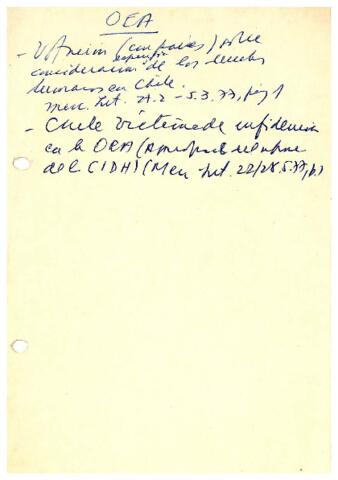 OEA
- Votación (con países) sobre
consideración de los derechos
humanos en Chile.
Merc. Int. 27.2 - 5.3.77, pág 1
- Chile víctima de infidencia
en la OEA (A propósito del informe
de la CIDH) (Merc. Int. 22/28.5.77, p.)